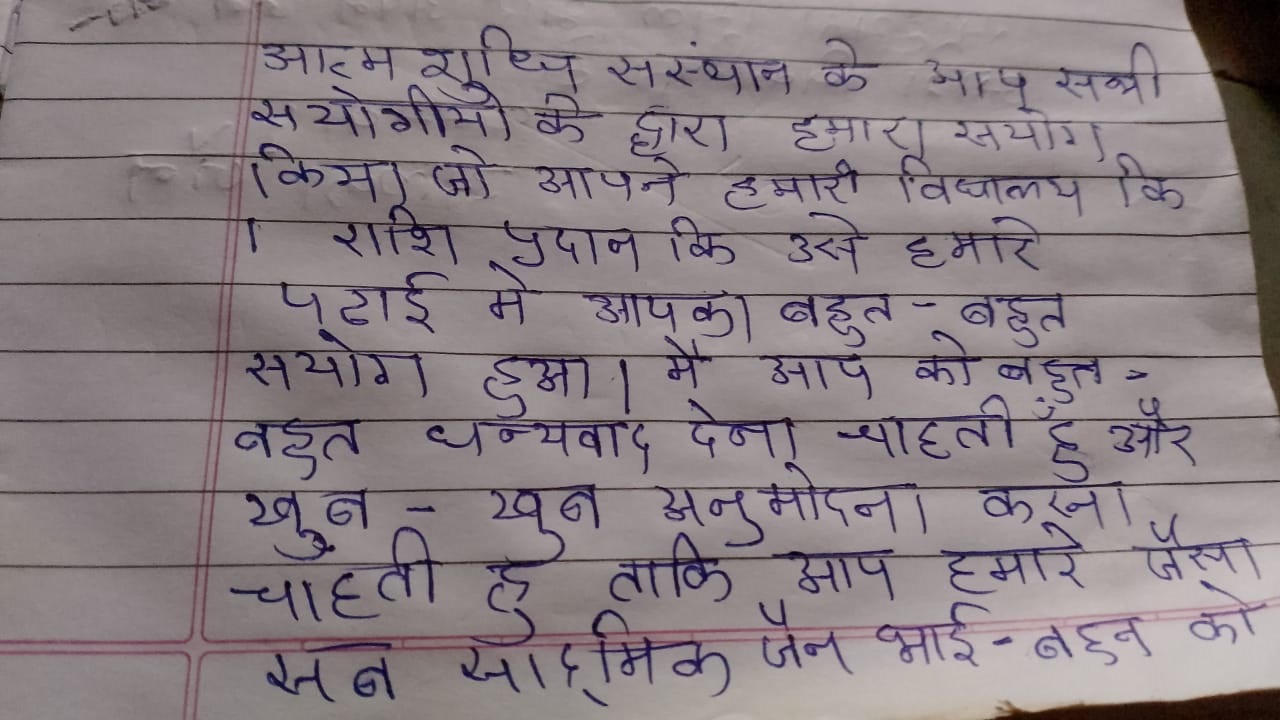 आत्म शुध्दि संस्थान के आप सभी
सयोगीयो के द्वारा हमारा सयोग
किया जो आपने हमारी विधालय कि
। राशि प्रदान कि उसे हमारे
पढाई मे आपका बहुत - बहुत
सयोग हुआ। मै आप को बहुत -
बहुत धन्यवाद देना चाहती हुँ और
खुब - खुब अनुमोदना करना
चाहती हु ताकि आप हमारे जैसा
सब सार्द्मिक जैन भाई - बहन को